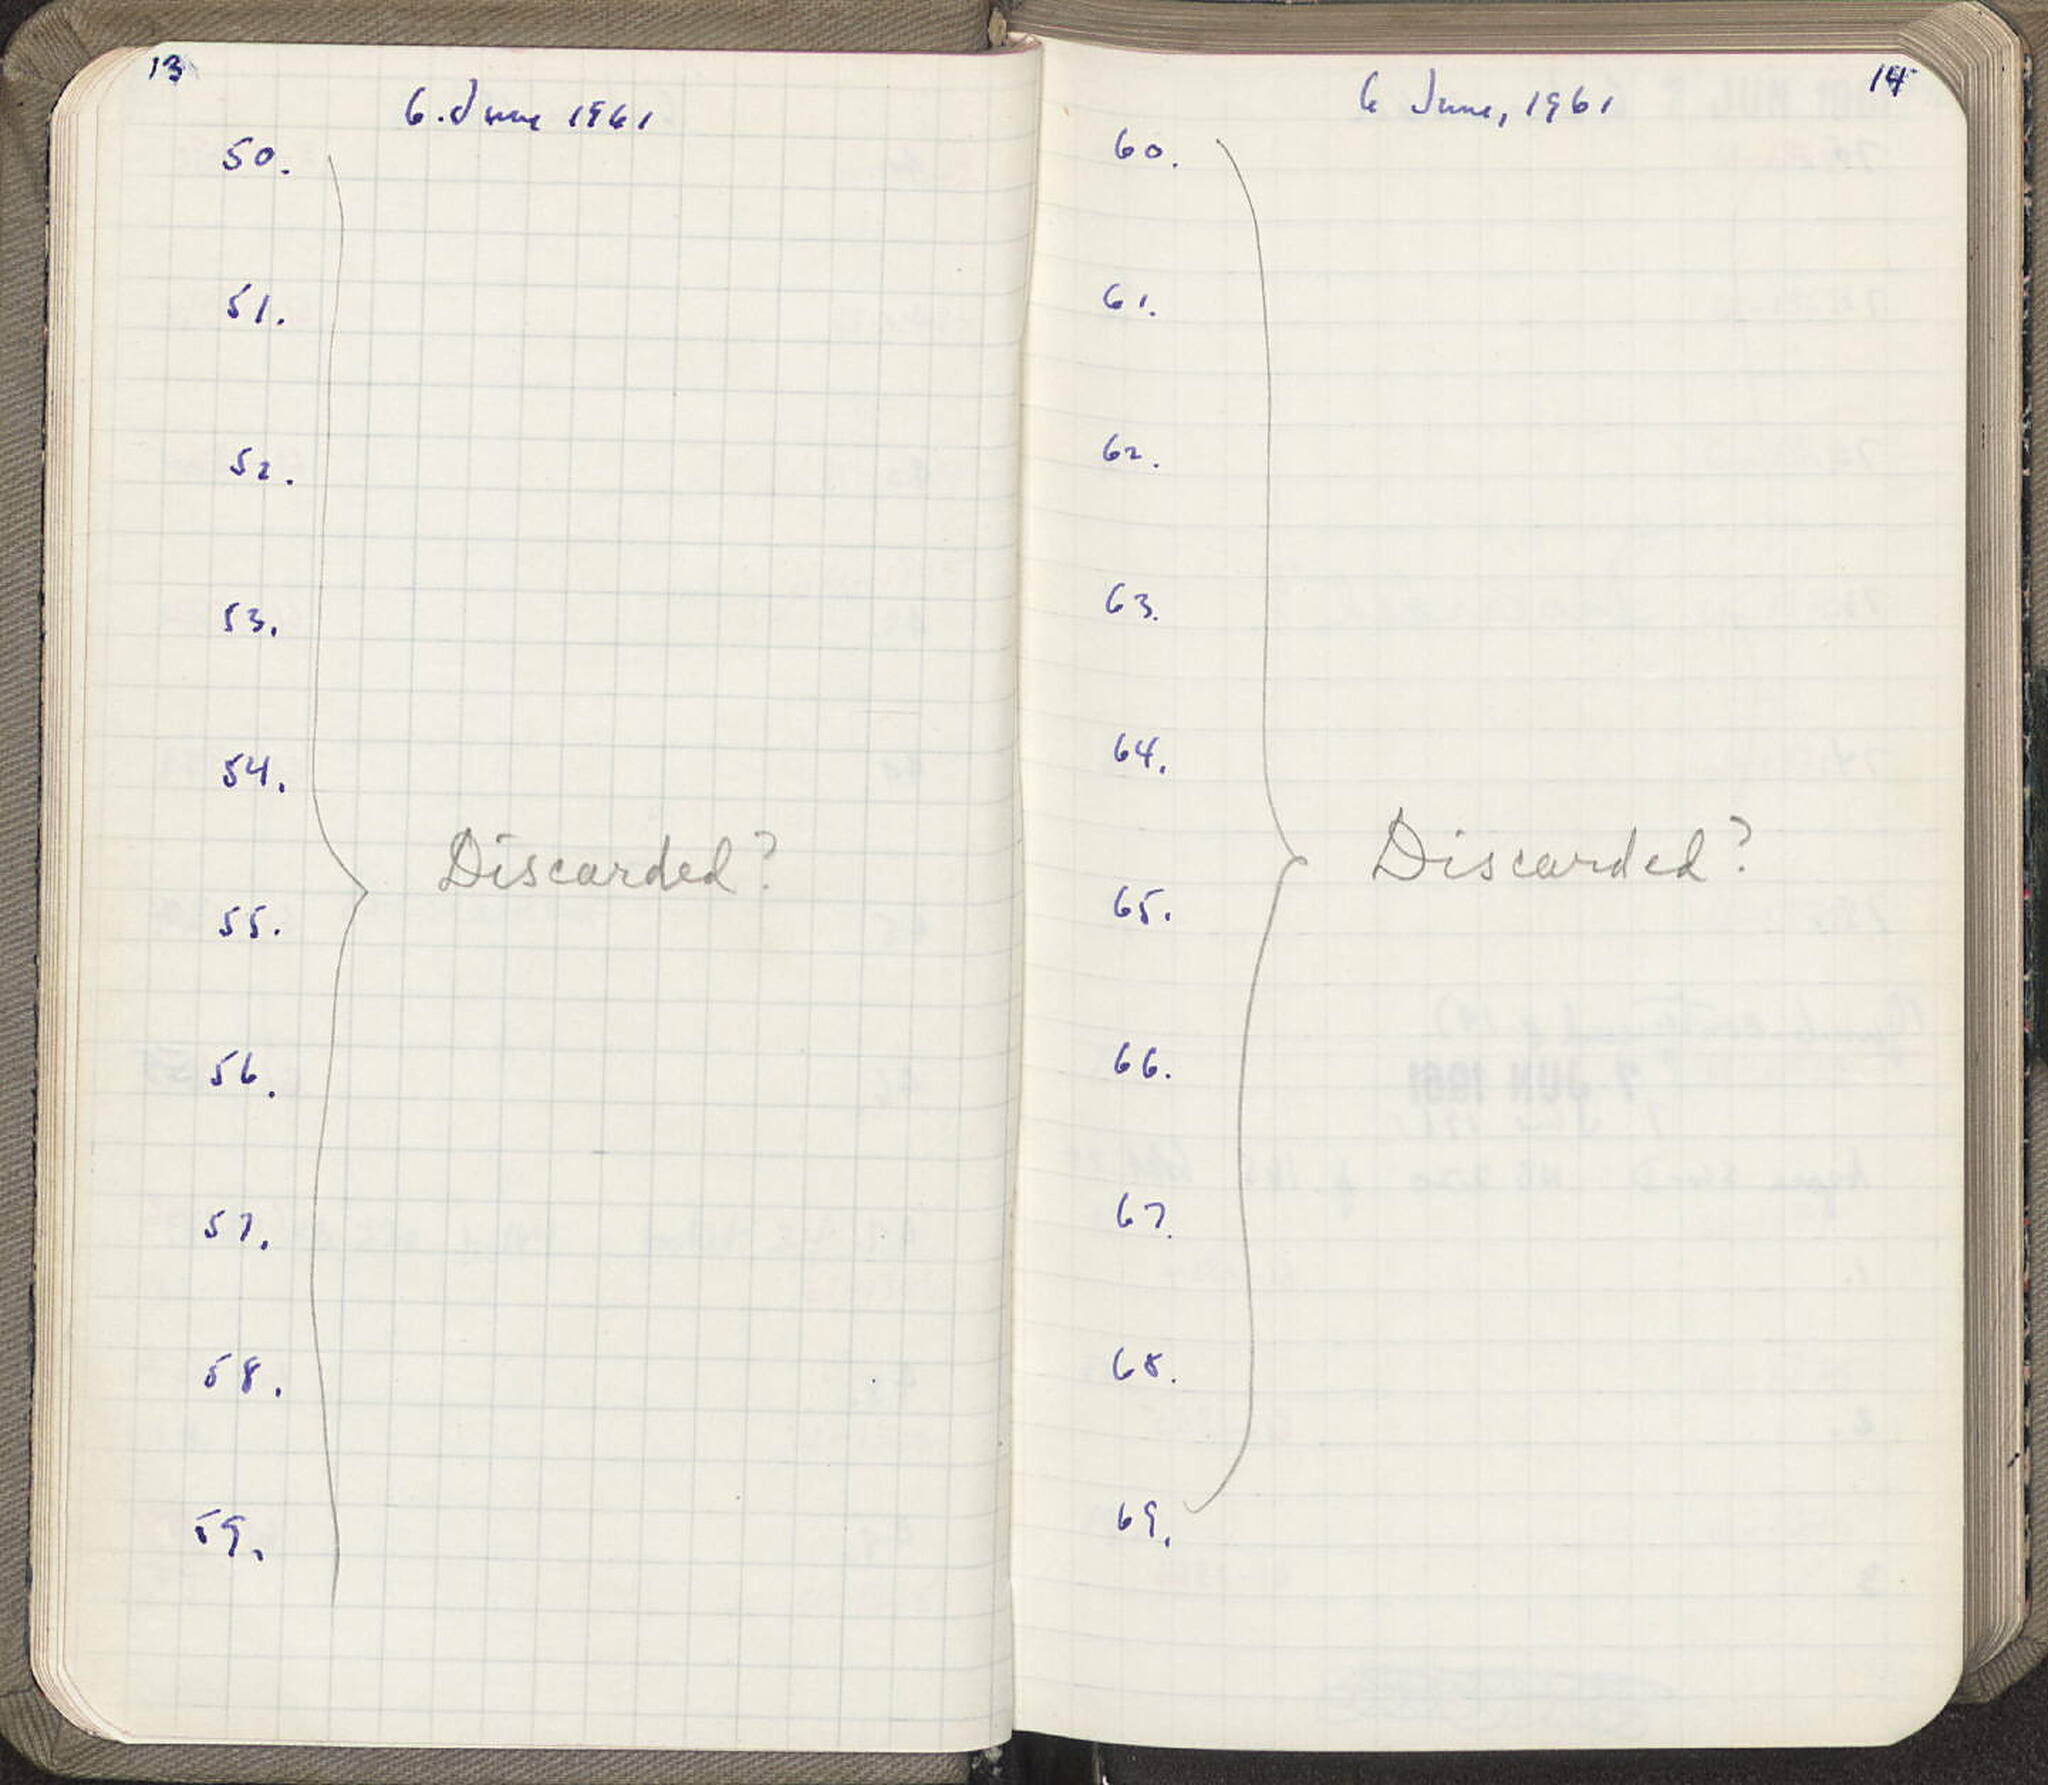 13
6. June 1961
50.
51.
52.
53.
54.
Discarded?
55.
56.
57.
58.
59.
14
6 June, 1961
60.
61.
62.
63.
64.
Discarded?
65.
66.
67.
68.
69.